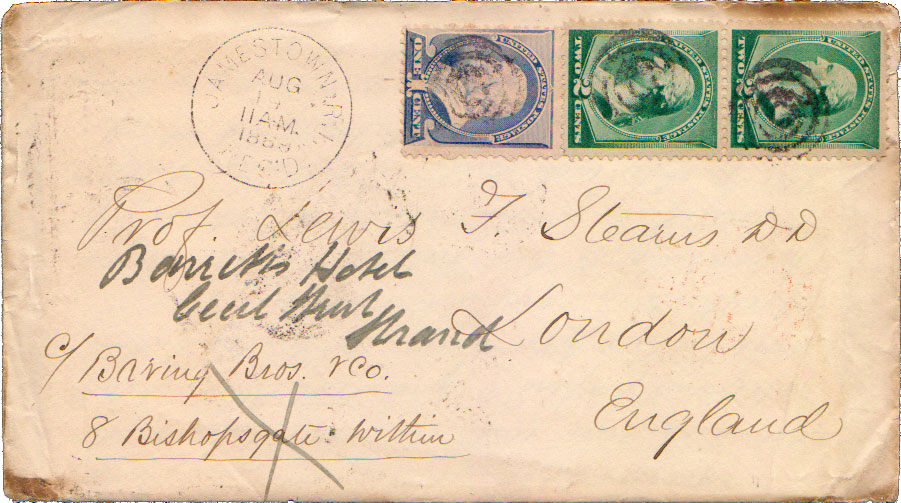 JAMESTOWN, R.I.
AUG
11 A.M.
REC'D.
UNITED STATES POSTAGE
ONE CENT
UNITED STATES POSTAGE
TWO 2 CENTS
UNITED STATES POSTAGE
TWO 2 CENTS
Prof. Lewis F. Stearns D D
Barrett's Hotel
Cecil Street
Strand
London
c/ Baring Bros. & Co.
8 Bishopsgate Within
England